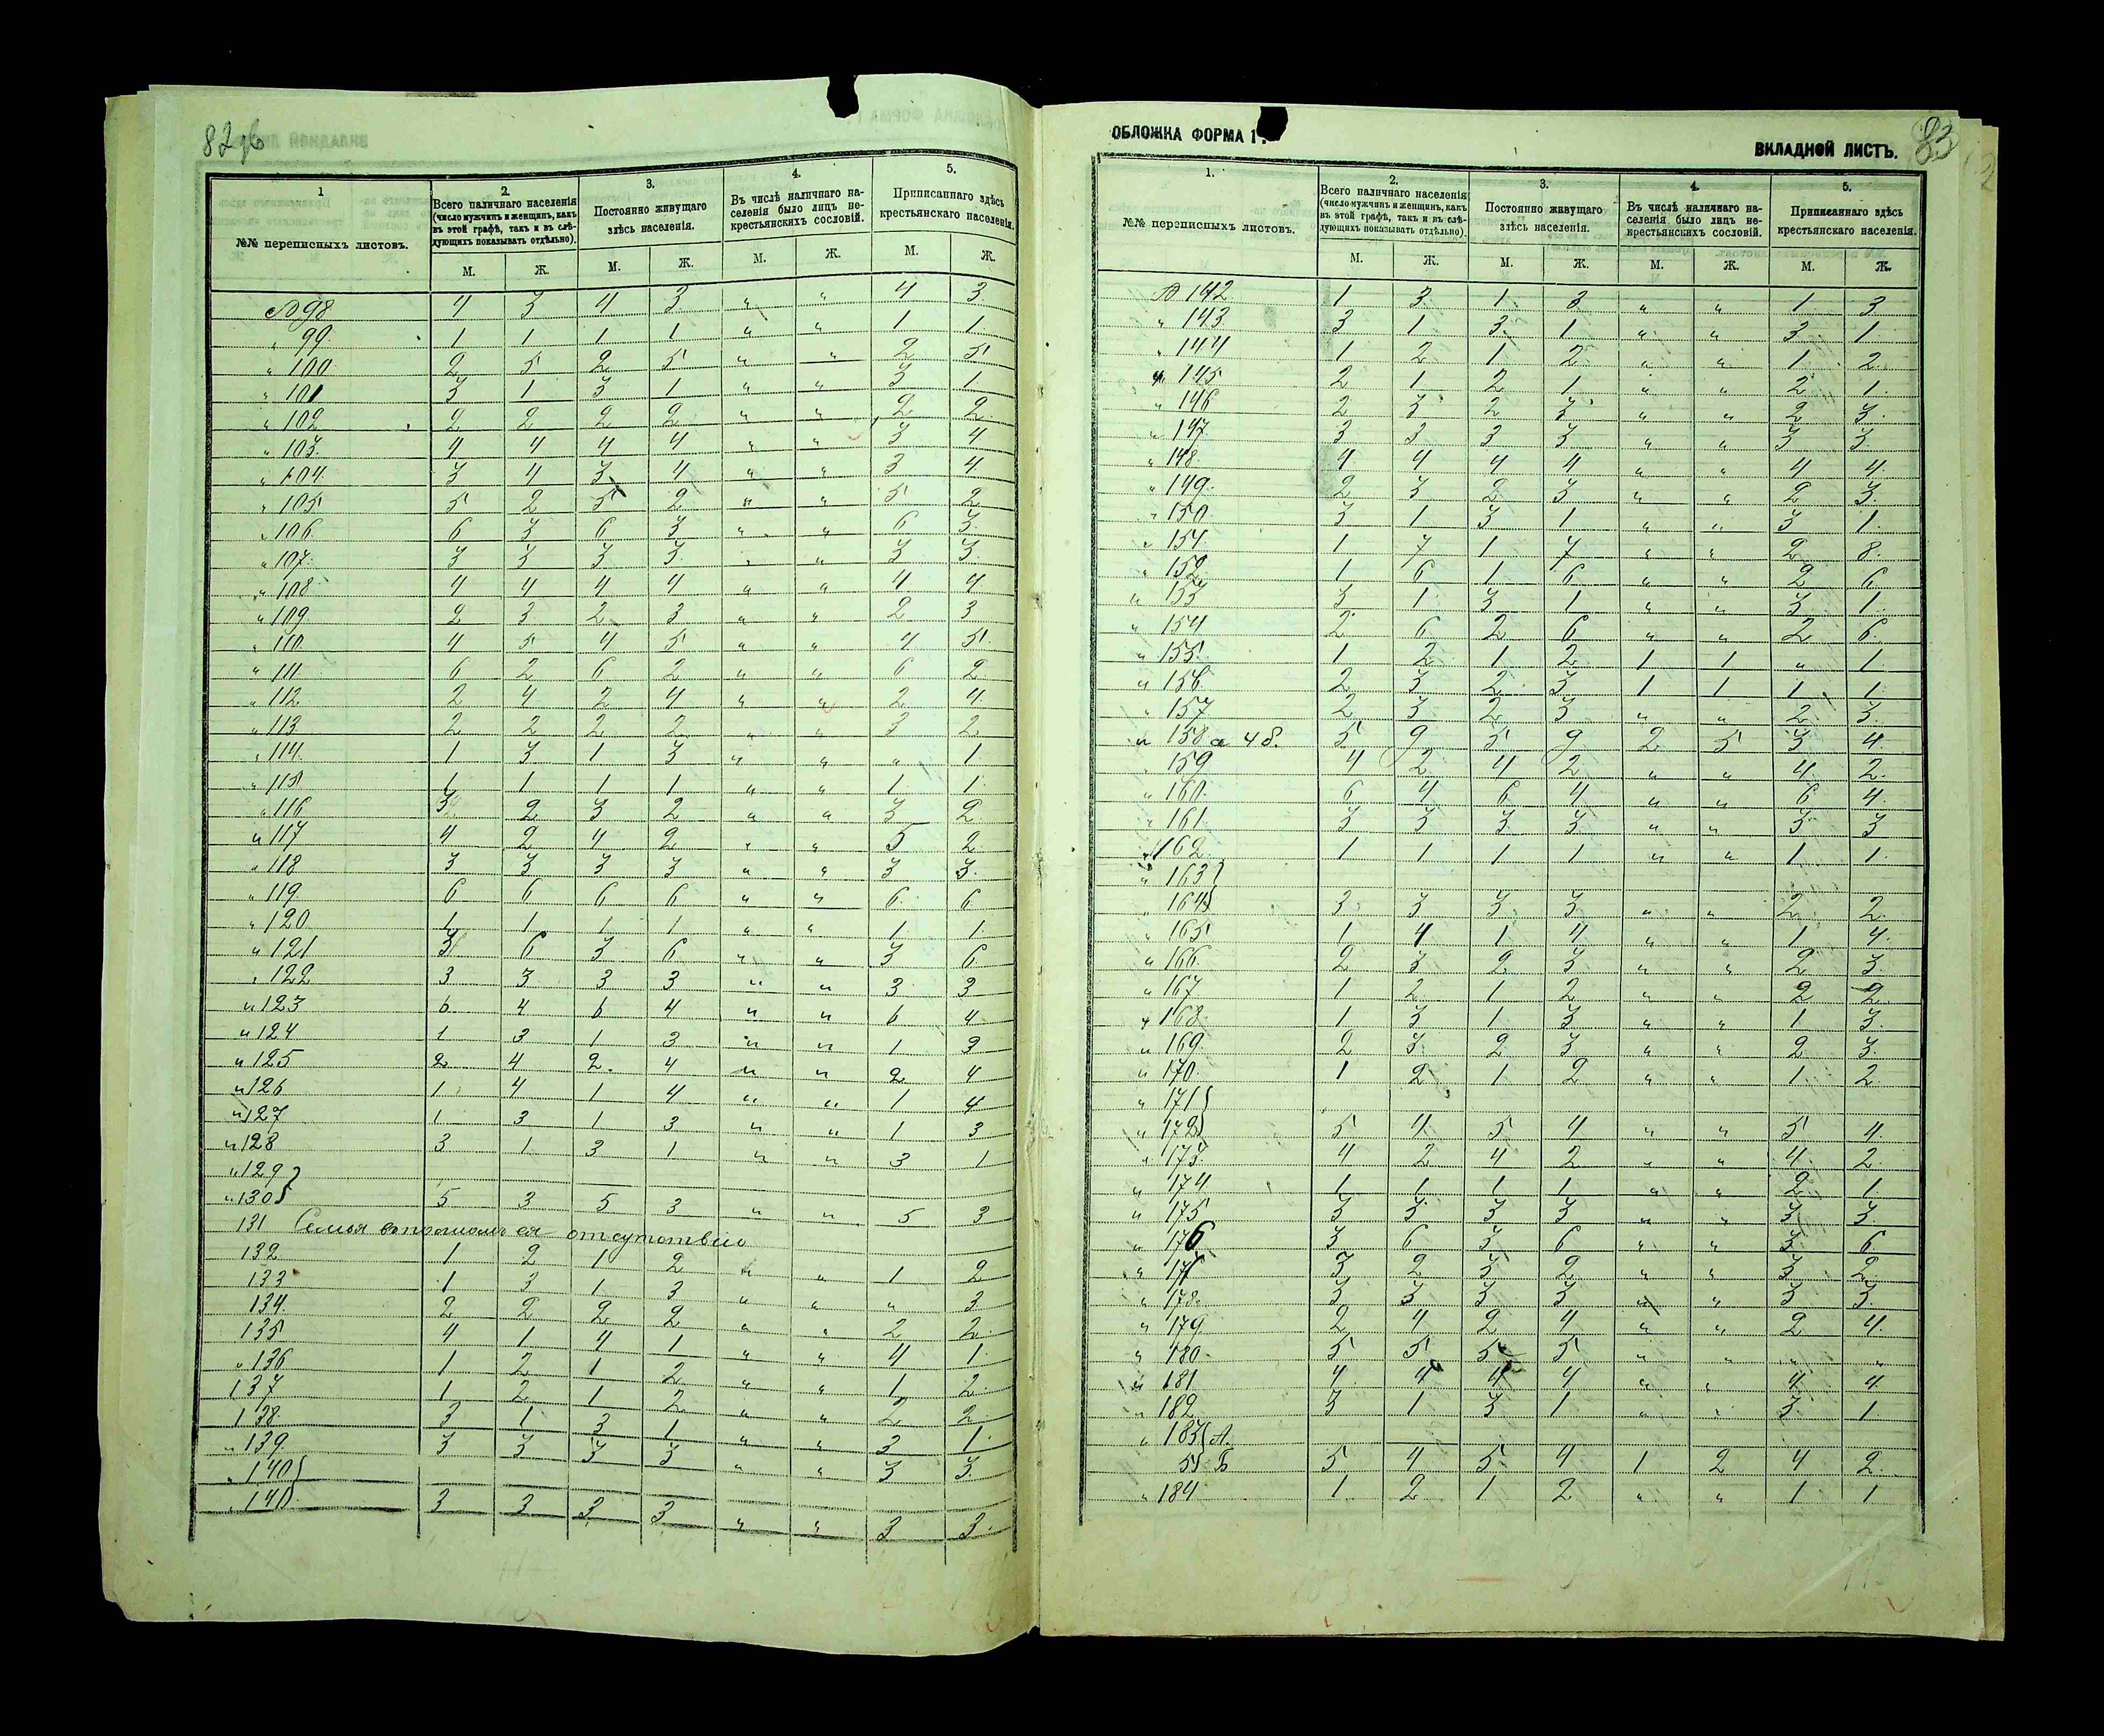 82 об
1
2.
3.
4.
5.
№№ переписныхъ листовъ.
Всего наличнаго населенія
(число мужчинъ и женщинъ, какъ
въ этой графѣ, такъ и въ слѣ-
дующихъ показывать отдѣльно).
Постоянно живущаго
здѣсь населенія.
Въ числѣ наличнаго на-
селенія было лицъ не-
крестьянскихъ сословій.
Приписаннаго здѣсь
крестьянскаго населенія.
М. Ж. М. Ж. М. Ж. М. Ж.
№ 98 4 3 4 3 " " 4 3
" 99. 1 1 1 1 " " 1 1
" 100 2 5 2 5 " " 2 5
" 101 3 1 3 1 " " 3 1
" 102 2 2 2 2 " " 2 2
" 103. 4 4 4 4 " " 3 4
" 104. 3 4 3 4 " " 3 4
" 105 5 2 5 2 " " 5 2
" 106 6 3 6 3 " " 6 3
" 107. 3 3 3 3 " " 3 3
" 108 4 4 4 4 " " 4 4
" 109. 2 3 2 3 " " 2 3
" 110. 4 5 4 5 " " 4 5
" 111. 6 2 6 2 " " 6 2
" 112 2 4 2 4 " " 2 4
" 113 2 2 2 2 " " 3 2
" 114. 1 3 1 3 " " " 1
" 115 1 1 1 1 " " 1 1
" 116 3 2 3 2 " " 3 2
" 117 4 2 4 2 " " 5 2
" 118 3 3 3 3 " " 3 3
" 119. 6 6 6 6 " " 6 6
" 120 1 1 1 1 " " 1 1
" 121 3 6 3 6 " " 3 6
" 122 3 3 3 3 " " 3 3
" 123 6 4 6 4 " " 6 4
" 124 1 3 1 3 " " 1 3
" 125 2 4 2 4 " " 2 4
" 126 1 4 1 4 " " 1 4
" 127 1 3 1 3 " " 1 3
" 128 3 1 3 1 " " 3 1
" 129}
" 130} 5 3 5 3 " " 5 3
131 Семья въ полномъ ея отсутствіи
132 1 2 1 2 " " 1 2
133 1 3 1 3 " " " 3
134. 2 2 2 2 " " 2 2
135 4 1 4 1 " " 4 1
" 136 1 2 1 2 " " 1 2
137 1 2 1 2 " " 2 2
138. 3 1 3 1 " " 3 1
" 139. 3 3 3 3 " " 3 3
" 140}
" 141} 3 3 3 3 " " 3 3
ОБЛОЖКА ФОРМА 1
ВКЛАДНОЙ ЛИСТЪ.
83
1.
2.
3.
4.
5.
№№ переписныхъ листовъ.
Всего наличнаго населенія
(число мужчинъ и женщинъ, какъ
въ этой графѣ, такъ и въ слѣ-
дующихъ показывать отдѣльно).
Постоянно живущаго
здѣсь населенія.
Въ числѣ наличнаго на-
селенія было лицъ не-
крестьянскихъ сословій.
Приписаннаго здѣсь
крестьянскаго населенія.
М. Ж. М. Ж. М. Ж. М. Ж.
№ 142 1 3 1 3 " " 1 3
" 143 3 1 3 1 " " 3 1
" 144 1 2 1 2 " " 1 2
" 145 2 1 2 1 " " 2 1
" 146 2 3 2 3 " " 2 3
" 147 3 3 3 3 " " 3 3
" 148 4 4 4 4 " " 4 4
" 149. 2 3 2 3 " " 2 3
" 150 3 1 3 1 " " 3 1
" 151. 1 7 1 7 " " 2 8
" 152 1 6 1 6 " " 2 6
" 153 3 1 3 1 " " 3 1
" 154 2 6 2 6 " " 2 6
" 155 1 2 1 2 1 1 " 1
" 156. 2 3 2 3 1 1 1 1
" 157 2 3 2 3 " " 2 3
" 158 5 9 5 9 2 5 3 4
159 4 2 4 2 " " 4 2
" 160. 6 4 6 4 " " 6 4
" 161. 3 3 3 3 " " 3 3
" 162 1 1 1 1 " " 1 1
" 163}
" 164} 3 3 3 3 " " 2 2
" 165 1 4 1 4 " " 1 4
" 166 2 3 2 3 " " 2 3
" 167 1 2 1 2 " " 2 2
" 168. 1 3 1 3 " " 1 3
" 169. 2 3 2 3 " " 2 3
" 170 1 2 1 2 " " 1 2
" 171}
" 172} 5 4 5 4 " " 5 4
" 173. 4 2 4 2 " " 4 2
" 174 1 1 1 1 " " 2 1
" 175 3 3 3 3 " " 3 3
" 176 3 6 3 6 " " 3 6
" 177 3 2 3 2 " " 3 2
" 178. 3 3 3 3 " " 3 3
" 179. 2 4 2 4 " " 2 4
" 180. 5 5 5 5 " " " "
" 181 4 4 4 4 " " 4 4
" 182 3 1 3 1 " " 3 1
" 183 { А.
55 } Б 5 4 5 4 1 2 4 2
" 184 1 2 1 2 " " 1 1